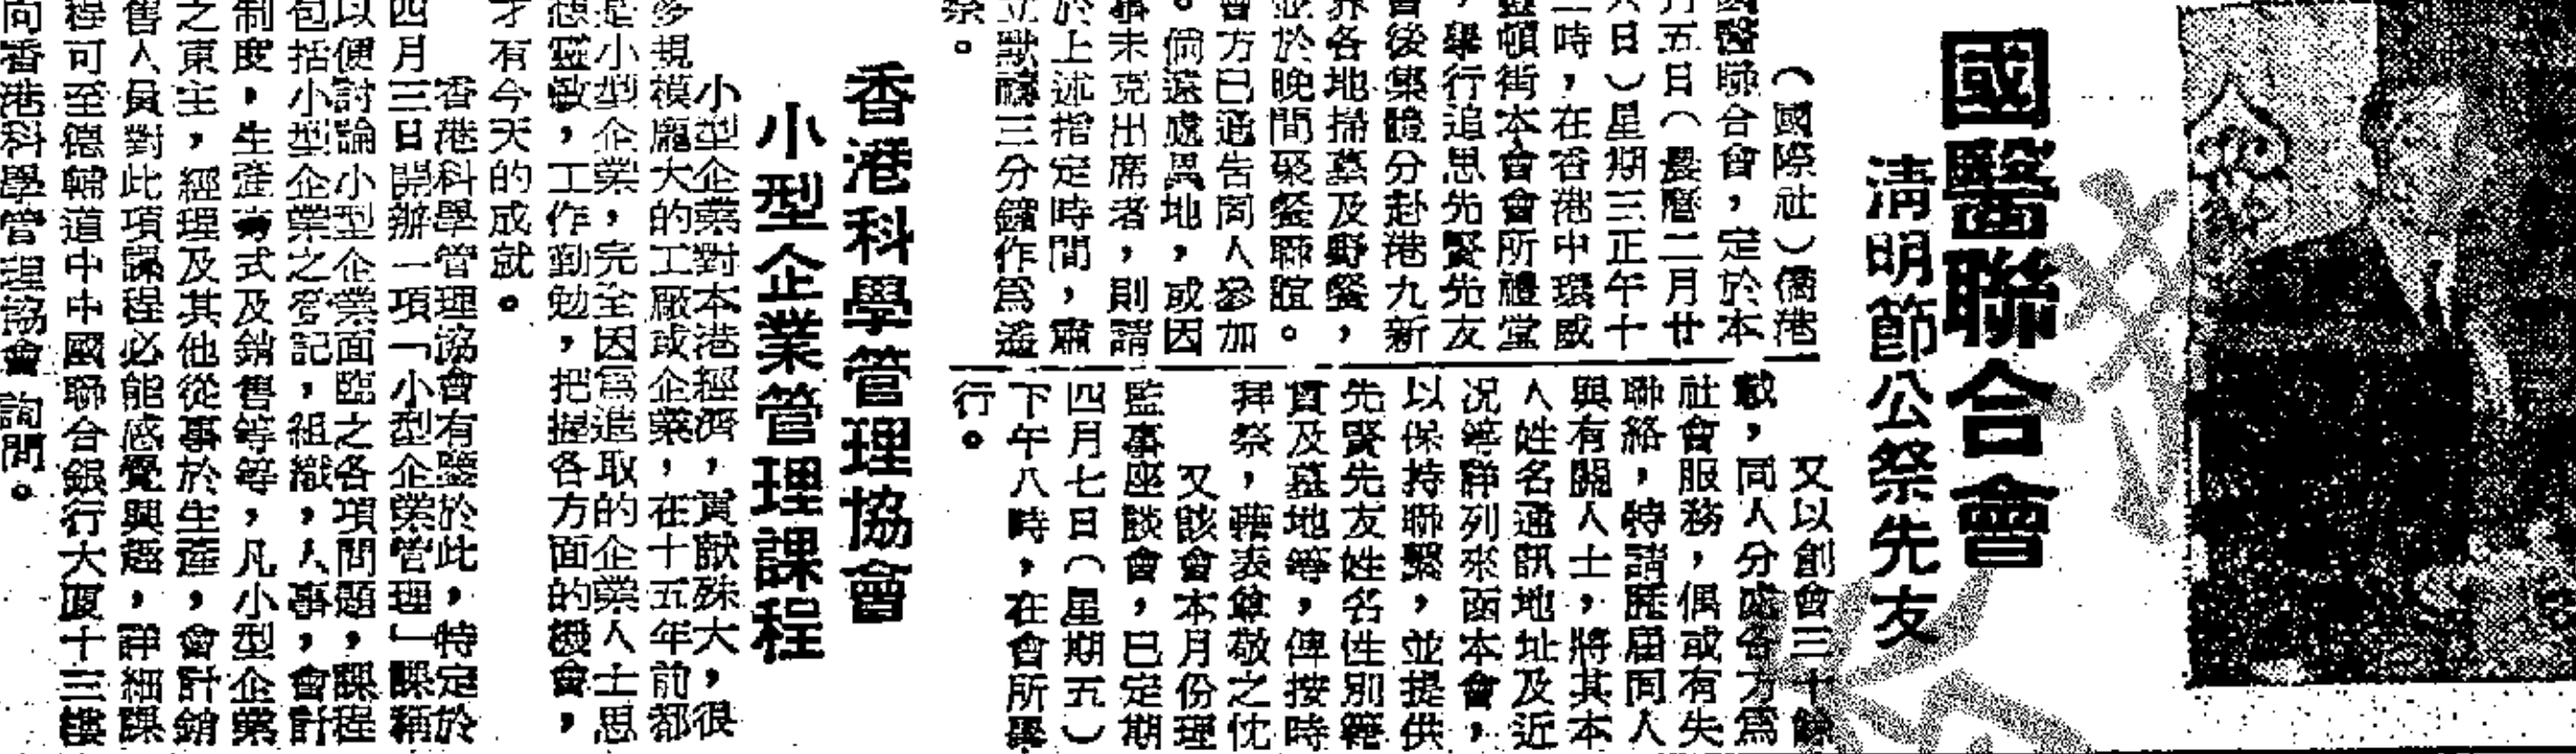 國醫聯合會
清明節公祭先友
（國際社）僑港
國醫聯合會，定於本
月五日（農曆二月廿
八日）星期三正午十
二時，在香港中環威
靈頓街本會會所禮堂
，舉行追思先賢先友
會後集體分赴港九新
界各地掃墓及野餐，
並於晚間聚餐聯誼。
會方已通告同人參加
。倘遠處異地，或因
事未克出席者，則請
於上述指定時間，肅
立默禱三分鐘作為遙
祭。
又以創會三十餘
載，同人分處各方為
社會服務，偶或有失
聯絡，特請歷屆同人
與有關人士，將其本
人姓名通訊地址及近
況等詳列來函本會，
以保持聯繫，並提供
先賢先友姓名性別籍
貫及墓地等，俾按時
拜祭，藉表雖敬之忱
又該會本月份理
監事座談會，已定期
四月七日（星期五）
下午八時，在會所舉
行。
香港科學管理協會
小型企業管理課程
小型企業對本港經濟，貢獻殊大，很
多規模龐大的工廠或企業，在十五年前都
是小型企業，完全因為進取的企業人士思
想靈敏，工作勤勉，把握各方面的機會，
才有今天的成就。
香港科學管理協會有鑒於此，特定於
四月三日開辦一項「小型企業管理」課程
以便討論小型企業面臨之各項問題，課程
包括小型企業之登記，組織，人事，會計
制度，生產方式及銷售等等，凡小型企業
之東主，經理及其他從事於生產，會計銷
售人員對此項課程必能感覺興趣，詳細課
程可至德輔道中中國聯合銀行大廈十三樓
向香港科學管理協會詢問。